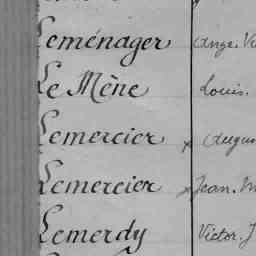 Leménager Ange. Vi
Le Mène Louis.
Lemercier x Augus
Lemercier x Jean. M
Lemerdy Victor. J